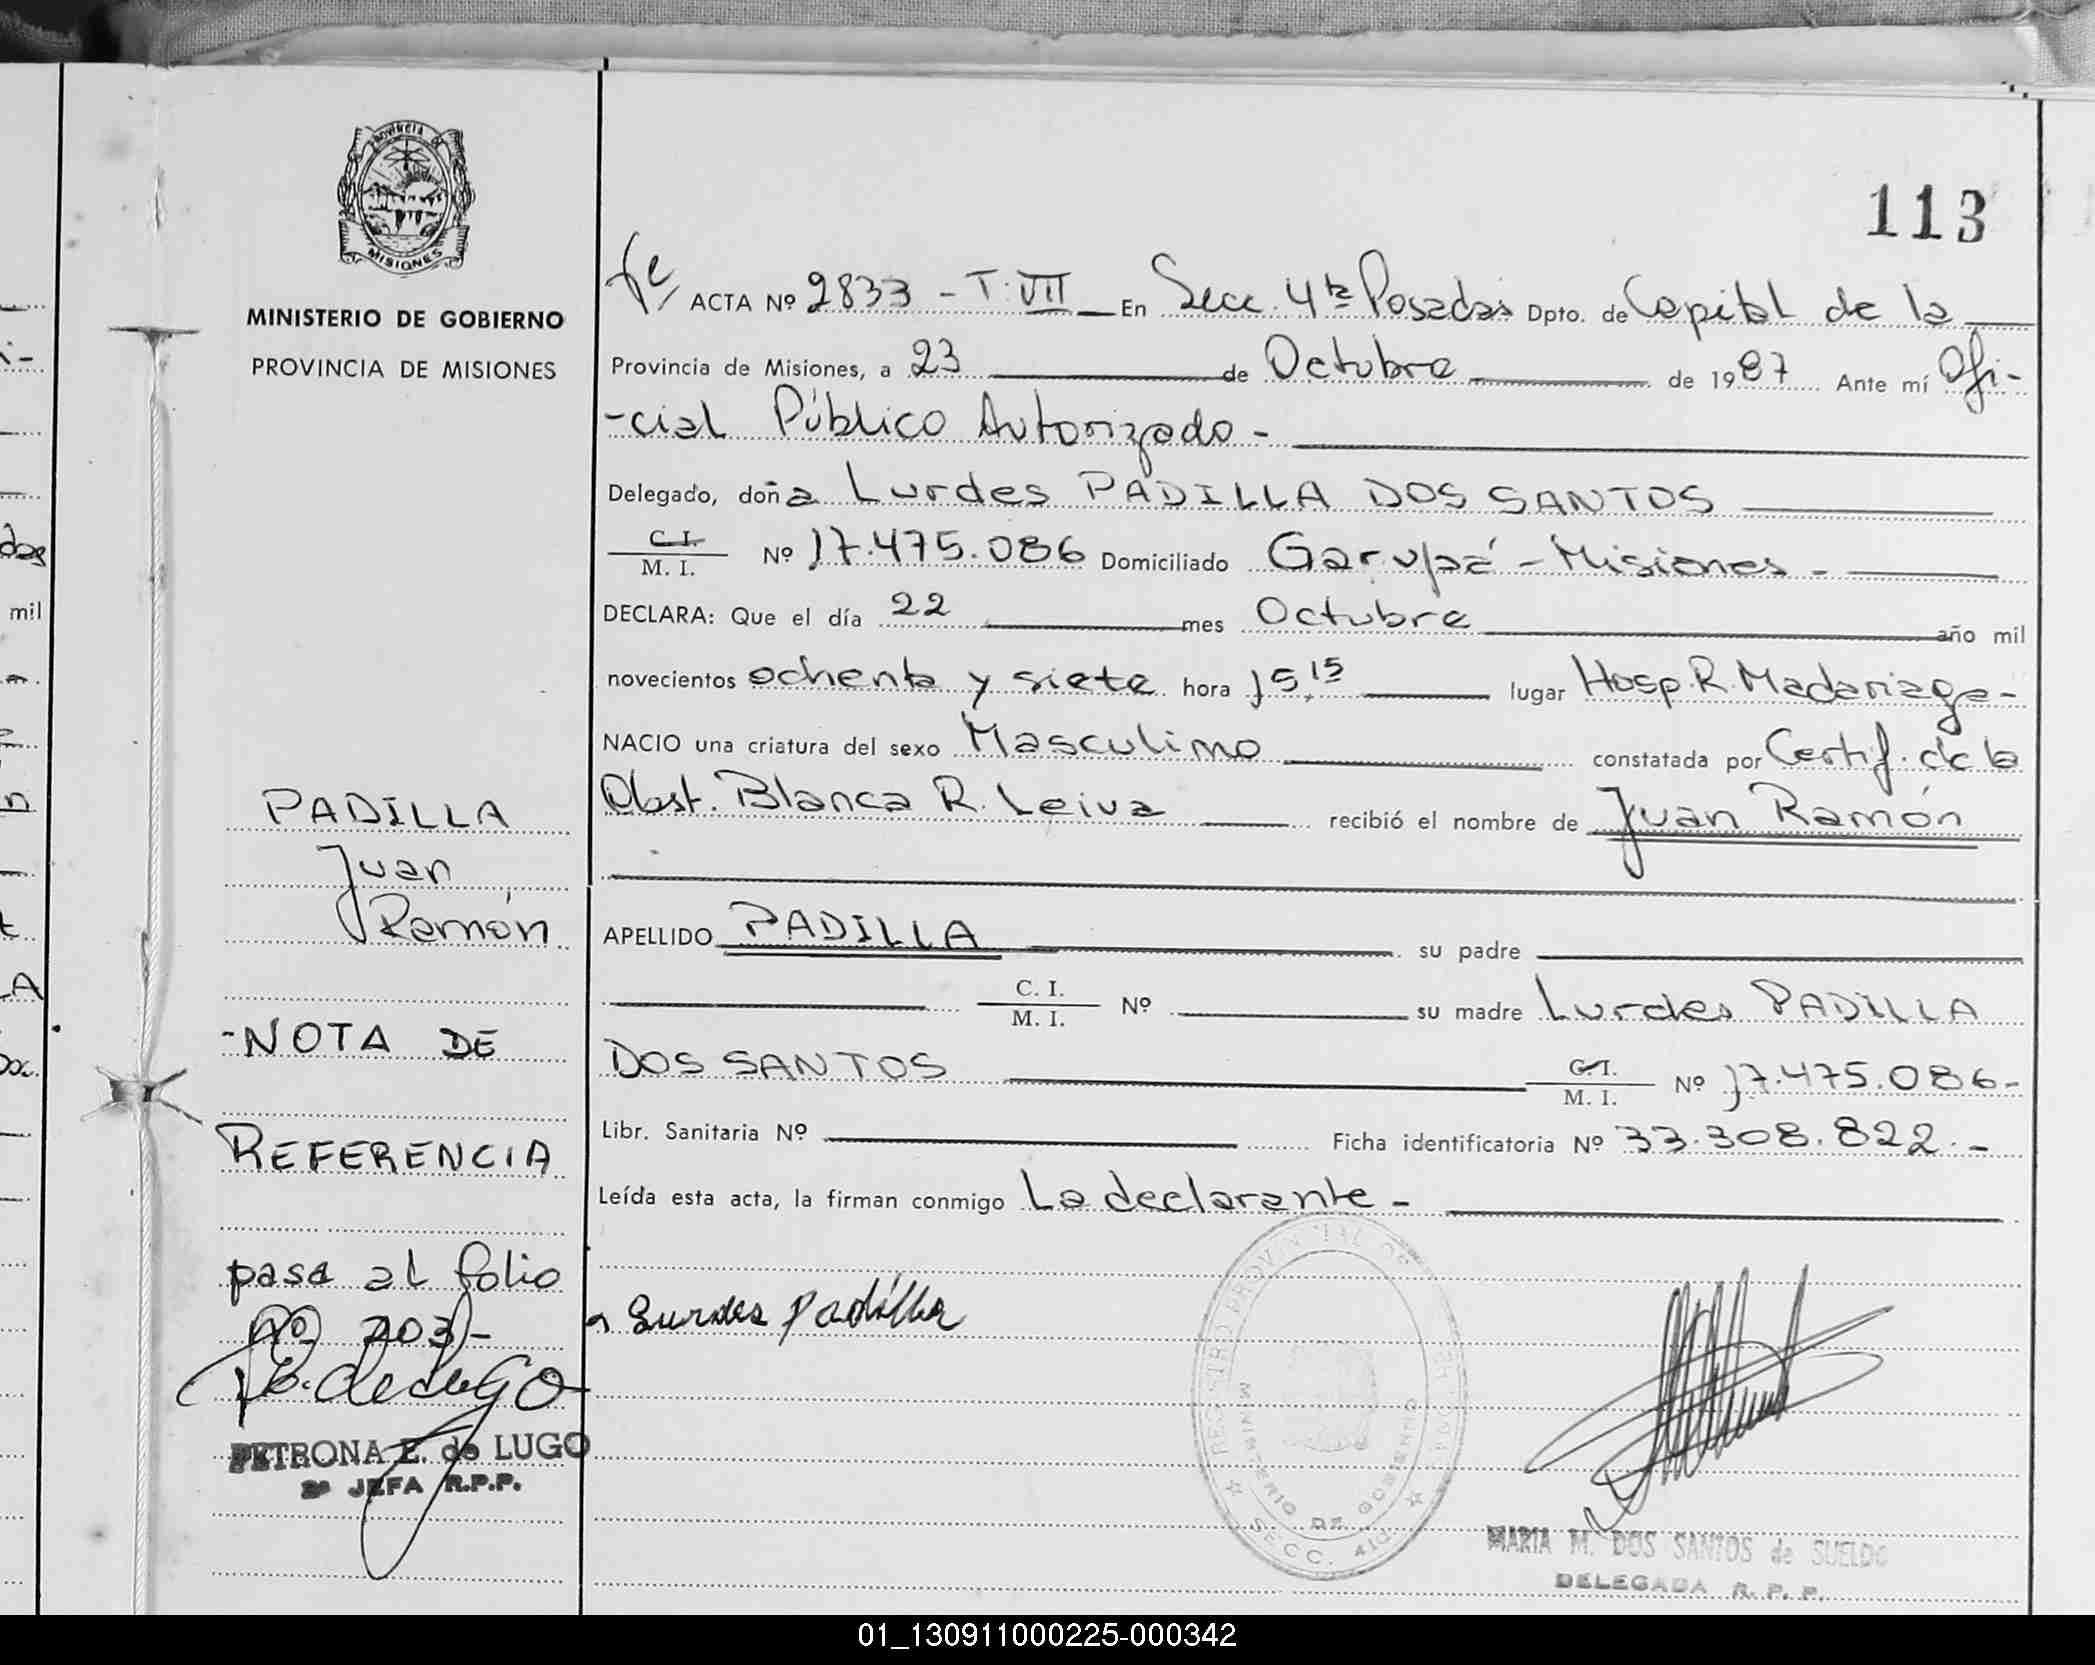 113
PROVINCIA DE
MISIONES
MINISTERIO DE GOBIERNO
PROVINCIA DE MISIONES
ACTA Nº 2833 - T: VII En Secc. 4ta Posadas Dpto. de Capital de la
Provincia de Misiones, a 23 de Octubre de 1987 Ante mí Ofi-
-cial Público Autorizado -
Delegado, doña Lurdes PADILLA DOS SANTOS
C. I.
M. I. Nº 17.475.086 Domiciliado Garupá - Misiones -
DECLARA: Que el día 22 mes Octubre año mil
novecientos ochenta y siete hora 15,15 lugar Hosp. R. Madariaga -
NACIO una criatura del sexo Masculino constatada por Certif. de la
Obst. Blanca R. Leiva recibió el nombre de Juan Ramón
APELLIDO PADILLA su padre
C. I.
M. I. Nº su madre Lurdes PADILLA
DOS SANTOS C. I.
M. I. Nº 17.475.086-
Libr. Sanitaria Nº Ficha identificatoria Nº 33.308.822.-
Leída esta acta, la firman conmigo La declarante -
Lurdes Padilla
PADILLA
Juan
Ramón
-NOTA DE
REFERENCIA
pasa al folio
Nº 203-
P. de Lugo
PETRONA E. de LUGO
2ª JEFA R.P.P.
REGISTRO PROVINCIAL DE LAS PERSONAS
MINISTERIO DE GOBIERNO
SECC. 4ta
MARIA M. DOS SANTOS de SUELDO
DELEGADA R. P. P.
01_130911000225-000342